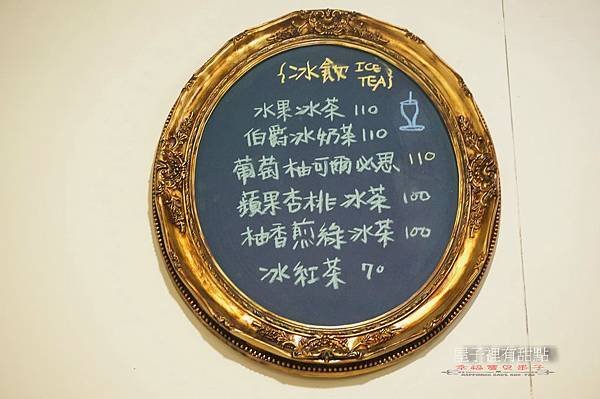 {冰飲 ICE TEA}
水果冰茶 110
伯爵冰奶茶 110
葡萄柚可爾必思 110
蘋果杏桃冰茶 100
柚香煎綠冰茶 100
冰紅茶 70
屋子裡有甜點